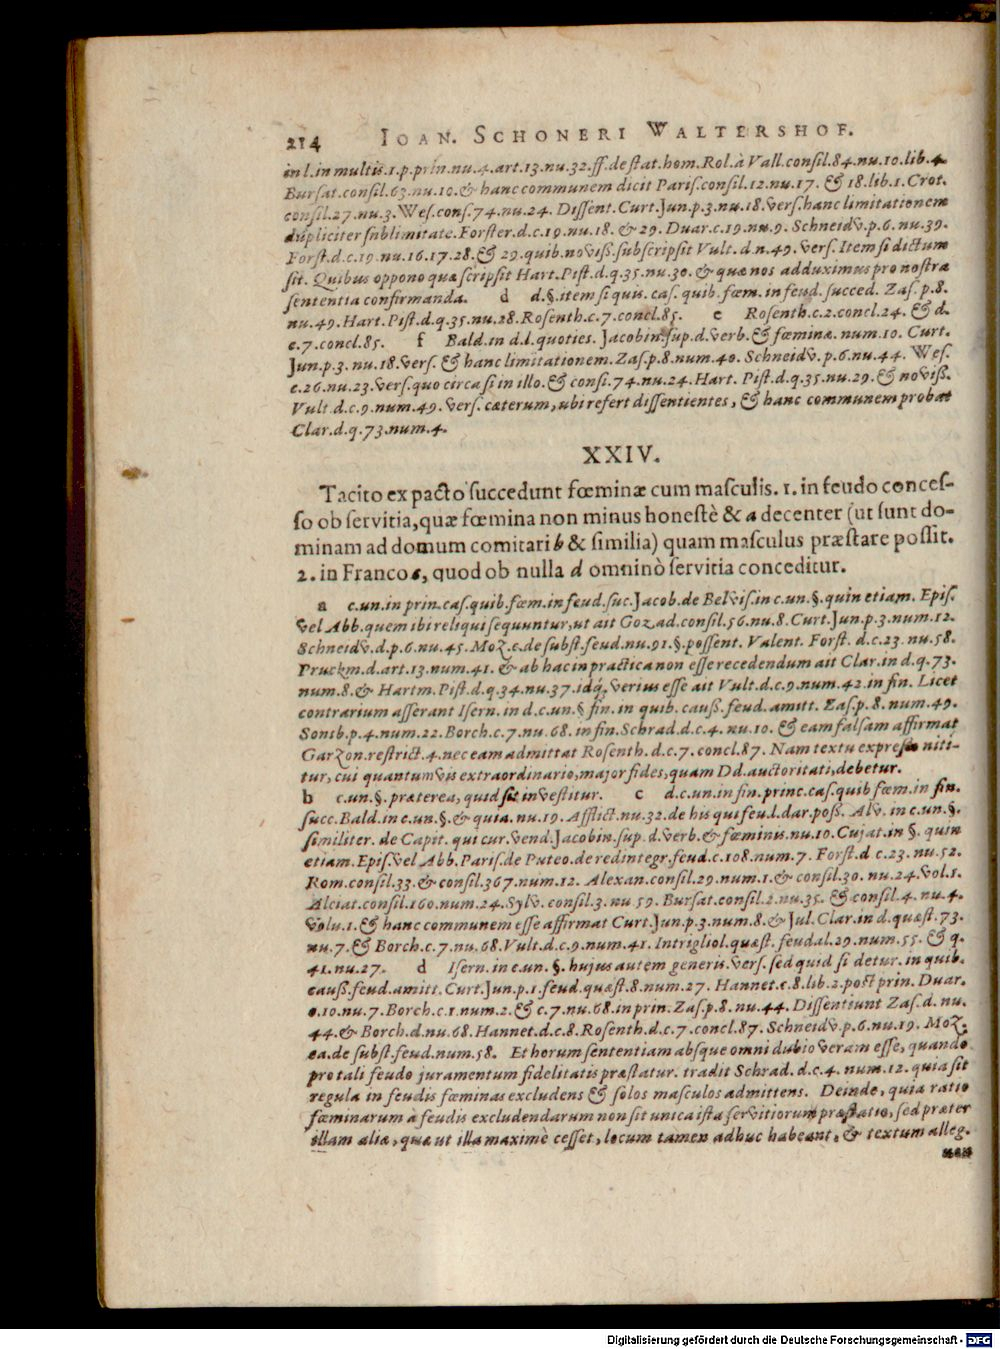 214 IOAN. SCHONERI WALTERSHOF.
in l. in multis. 1. p. prin. nu. 4. art. 13. nu. 32. ff. de stat. hom. Rol. à Vall. consil. 84. nu. 10. lib. 4.
Bursat. consil. 63. nu. 10. & hanc communem dicit Paris. consil. 12. nu. 17. & 18. lib. 1. Crot.
consil. 27. nu. 3. Wes. cons. 74. nu. 24. Dissent. Curt. Jun. p. 3. nu. 18. vers. hanc limitationem
dupliciter sublimitate. Forster. d. c. 19. nu. 18. & 29. Duar. c. 19. nu. 9. Schneidv. p. 6. nu. 39.
Forst. d. c. 19. nu. 16. 17. 28. & 29. quib. noviss. subscripsit Vult. d. n. 49. vers. Item si dictum
sit. Quibus oppono quæ scripsit Hart. Pist. d. q. 35. nu. 30. & quæ nos adduximus pro nostra
sententia confirmanda. d d. §. item si quis. cas. quib. fœm. in feud. succed. Zas. p. 8.
nu. 49. Hart. Pist. d. q. 35. nu. 28. Rosenth. c. 7. concl. 85. e Rosenth. c. 2. concl. 24. & d.
c. 7. concl. 85. f Bald. in d. l. quoties. Jacobin. sup. d. verb. & fœminæ. num. 10. Curt.
Jun. p. 3. nu. 18. vers. & hanc limitationem. Zas. p. 8. num. 40. Schneidv. p. 6. nu. 44. Wes.
c. 26. nu. 23. vers. quo circa si in illo. & consi. 74. nu. 24. Hart. Pist. d. q. 35. nu. 29. & noviss.
Vult. d. c. 9. num. 49. vers. cæterum, ubi refert dissentientes, & hanc communem probat
Clar. d. q. 73. num. 4.
XXIV.
Tacito ex pacto succedunt fœminæ cum masculis. 1. in feudo conces-
so ob servitia, quæ fœmina non minus honestè & a decenter (ut sunt do-
minam ad domum comitari b & similia) quam masculus præstare possit.
2. in Franco c, quod ob nulla d omninò servitia conceditur.
a c. un. in prin. cas. quib. fœm. in feud. suc. Jacob. de Belvis. in c. un. §. quin etiam. Epis.
vel Abb. quem ibi reliqui sequuntur, ut ait Gozad. consil. 56. nu. 8. Curt. Jun. p. 3. num. 12.
Schneidv. d. p. 6. nu. 45. Moz. c. de subst. feud. nu. 91. §. possent. Valent. Forst. d. c. 23. nu. 58.
Pruckm. d. art. 13. num. 41. & ab hac in practica non esse recedendum ait Clar. in d. q. 73.
num. 8. & Hartm. Pist. d. q. 34. nu. 37. idq́; verius esse ait Vult. d. c. 9. num. 42. in fin. Licet
contrarium asserant Isern. in d. c. un. § fin. in quib. causs. feud. amitt. Zas. p. 8. num. 49.
Sonsb. p. 4. num. 22. Borch. c. 7. nu. 68. in fin. Schrad. d. c. 4. nu. 10. & eam falsam affirmat
Garzon. restrict. 4. nec eam admittat Rosenth. d. c. 7. concl. 87. Nam textu expresso niti-
tur, cui quantumvis extraordinario, major fides, quam Dd. auctoritati, debetur.
b c. un. §. præterea, quid sit investitur. c d. c. un. in fin. princ. cas. quib fœm. in fin.
succ. Bald. in c. un. §. & quia. nu. 19. Afflict. nu. 32. de his qui feud. dar. poss. Alv. in c. un. §.
similiter. de Capit. qui cur. vend. Jacobin. sup. d. verb. & fœminis. nu. 10. Cujat. in §. quin
etiam. Epis. vel Abb. Paris. de Puteo. de redintegr. feud. c. 108. num. 7. Forst. d c. 23. nu. 52.
Rom. consil. 33. & consil. 367. num. 12. Alexan. consil. 29. num. 1. & consil. 30. nu. 24. vol. 1.
Alciat. consil. 160. num. 24. Sylv. consil. 3. nu 59. Bursat. consil. 2. nu. 35. & consil. 4. nu. 4.
volu. 1. & hanc communem esse affirmat Curt. Jun. p. 3. num. 8. & Jul. Clar. in d. quæst. 73.
nu. 7. & Borch. c. 7. nu. 68. Vult. d. c. 9. num. 41. Intrigliol. quæst. feudal. 29. num. 55. & q.
41. nu. 27. d Isern. in c. un. §. hujus autem generis. vers. sed quid si detur. in quib.
causs. feud. amitt. Curt. Jun. p. 1. feud. quæst. 8. num. 27. Hannet. c. 8. lib. 2. post prin. Duar.
c. 10. nu. 7. Borch. c. 1. num. 2. & c. 7. nu. 68. in prin. Zas. p. 8. nu. 44. Dissentiunt Zas. d. nu.
44. & Borch. d. nu. 68. Hannet. d. c. 8. Rosenth. d. c. 7. concl. 87. Schneidv. p. 6. nu. 19. Moz.
ca. de subst. feud. num. 58. Et horum sententiam absque omni dubio veram esse, quando
pro tali feudo juramentum fidelitatis præstatur. tradit Schrad. d. c. 4. num. 12. quia sit
regula in feudis fœminas excludens & solos masculos admittens. Deinde, quia ratio
fœminarum à feudis excludendarum non sit unica ista servitiorum præstatio, sed præter
illam alia, quæ ut illa maximè cesset, locum tamen adhuc habeant. & textum alleg.
Digitalisierung gefördert durch die Deutsche Forschungsgemeinschaft - DFG